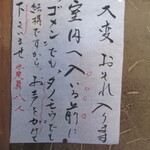 大変おそれ入りますが
室内へ入いる前に
ゴメンでもタノモウでも
結構ですからお声をかけて
下さいませ